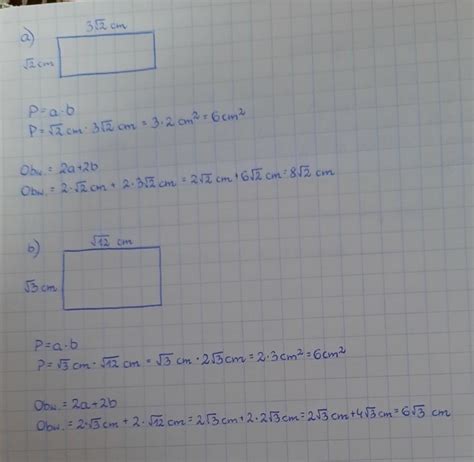 a)
3√2 cm
√2 cm
P=a·b
P=√2 cm · 3√2 cm = 3·2 cm² = 6cm²
Obw. = 2a+2b
Obw. = 2·√2 cm + 2·3√2 cm = 2√2 cm + 6√2 cm = 8√2 cm
b)
√12 cm
√3 cm
P=a·b
P=√3 cm · √12 cm = √3 cm · 2√3 cm = 2·3cm² = 6cm²
Obw. = 2a+2b
Obw. = 2·√3 cm + 2·√12 cm = 2√3 cm + 2·2√3 cm = 2√3 cm + 4√3 cm = 6√3 cm